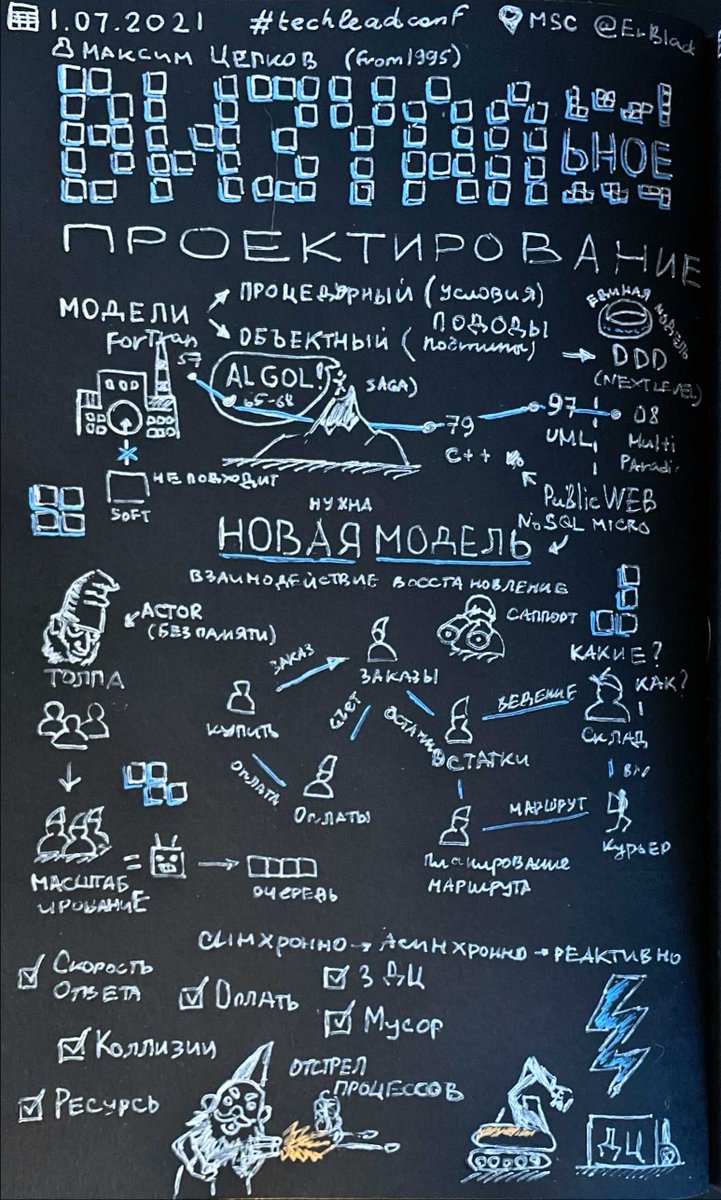 1.07.2021 #techleadconf MSC @ErBlack
Максим Цепков (from 1995)
ВИЗУАЛЬНОЕ
ПРОЕКТИРОВАНИЕ
МОДЕЛИ
ПРОЦЕДУРНЫЙ (условия)
ОБЪЕКТНЫЙ (
ЕДИНАЯ МОДЕЛЬ
DDD
(NEXT LEVEL)
forTran
57
ALGOL!
65-68
SAGA)
79
C++
97
UML
08
Multi
Paradi
НЕ ПОДХОДИТ
SOFT
Public WEB
NoSQL MICRO
НУЖНА
НОВАЯ МОДЕЛЬ
ВЗАИМОДЕЙСТВИЕ ВОССТАНОВЛЕНИЕ
ACTOR
(БЕЗ ПАМЯТИ)
САППОРТ
КАКИЕ?
КАК?
ТОЛПА
ЗАКАЗ
ЗАКАЗЫ
КУПИТЬ
СЧЕТ
ОСТАТКИ
ОСТАТКИ
ВЕДЕНИЕ
СКЛАД
ОПЛАТА
ОПЛАТЫ
МАРШРУТ
КУРЬЕР
ПЛАНИРОВАНИЕ
МАРШРУТА
МАСШТАБ
ИРОВАНИЕ
=
ОЧЕРЕДЬ
СИНХРОННО → АСИНХРОННО → РЕАКТИВНО
Скорость
ответа
Оплать
3 ДЦ
Мусор
Коллизии
Ресурсь
ОТСТРЕЛ
ПРОЦЕССОВ
ДЦ